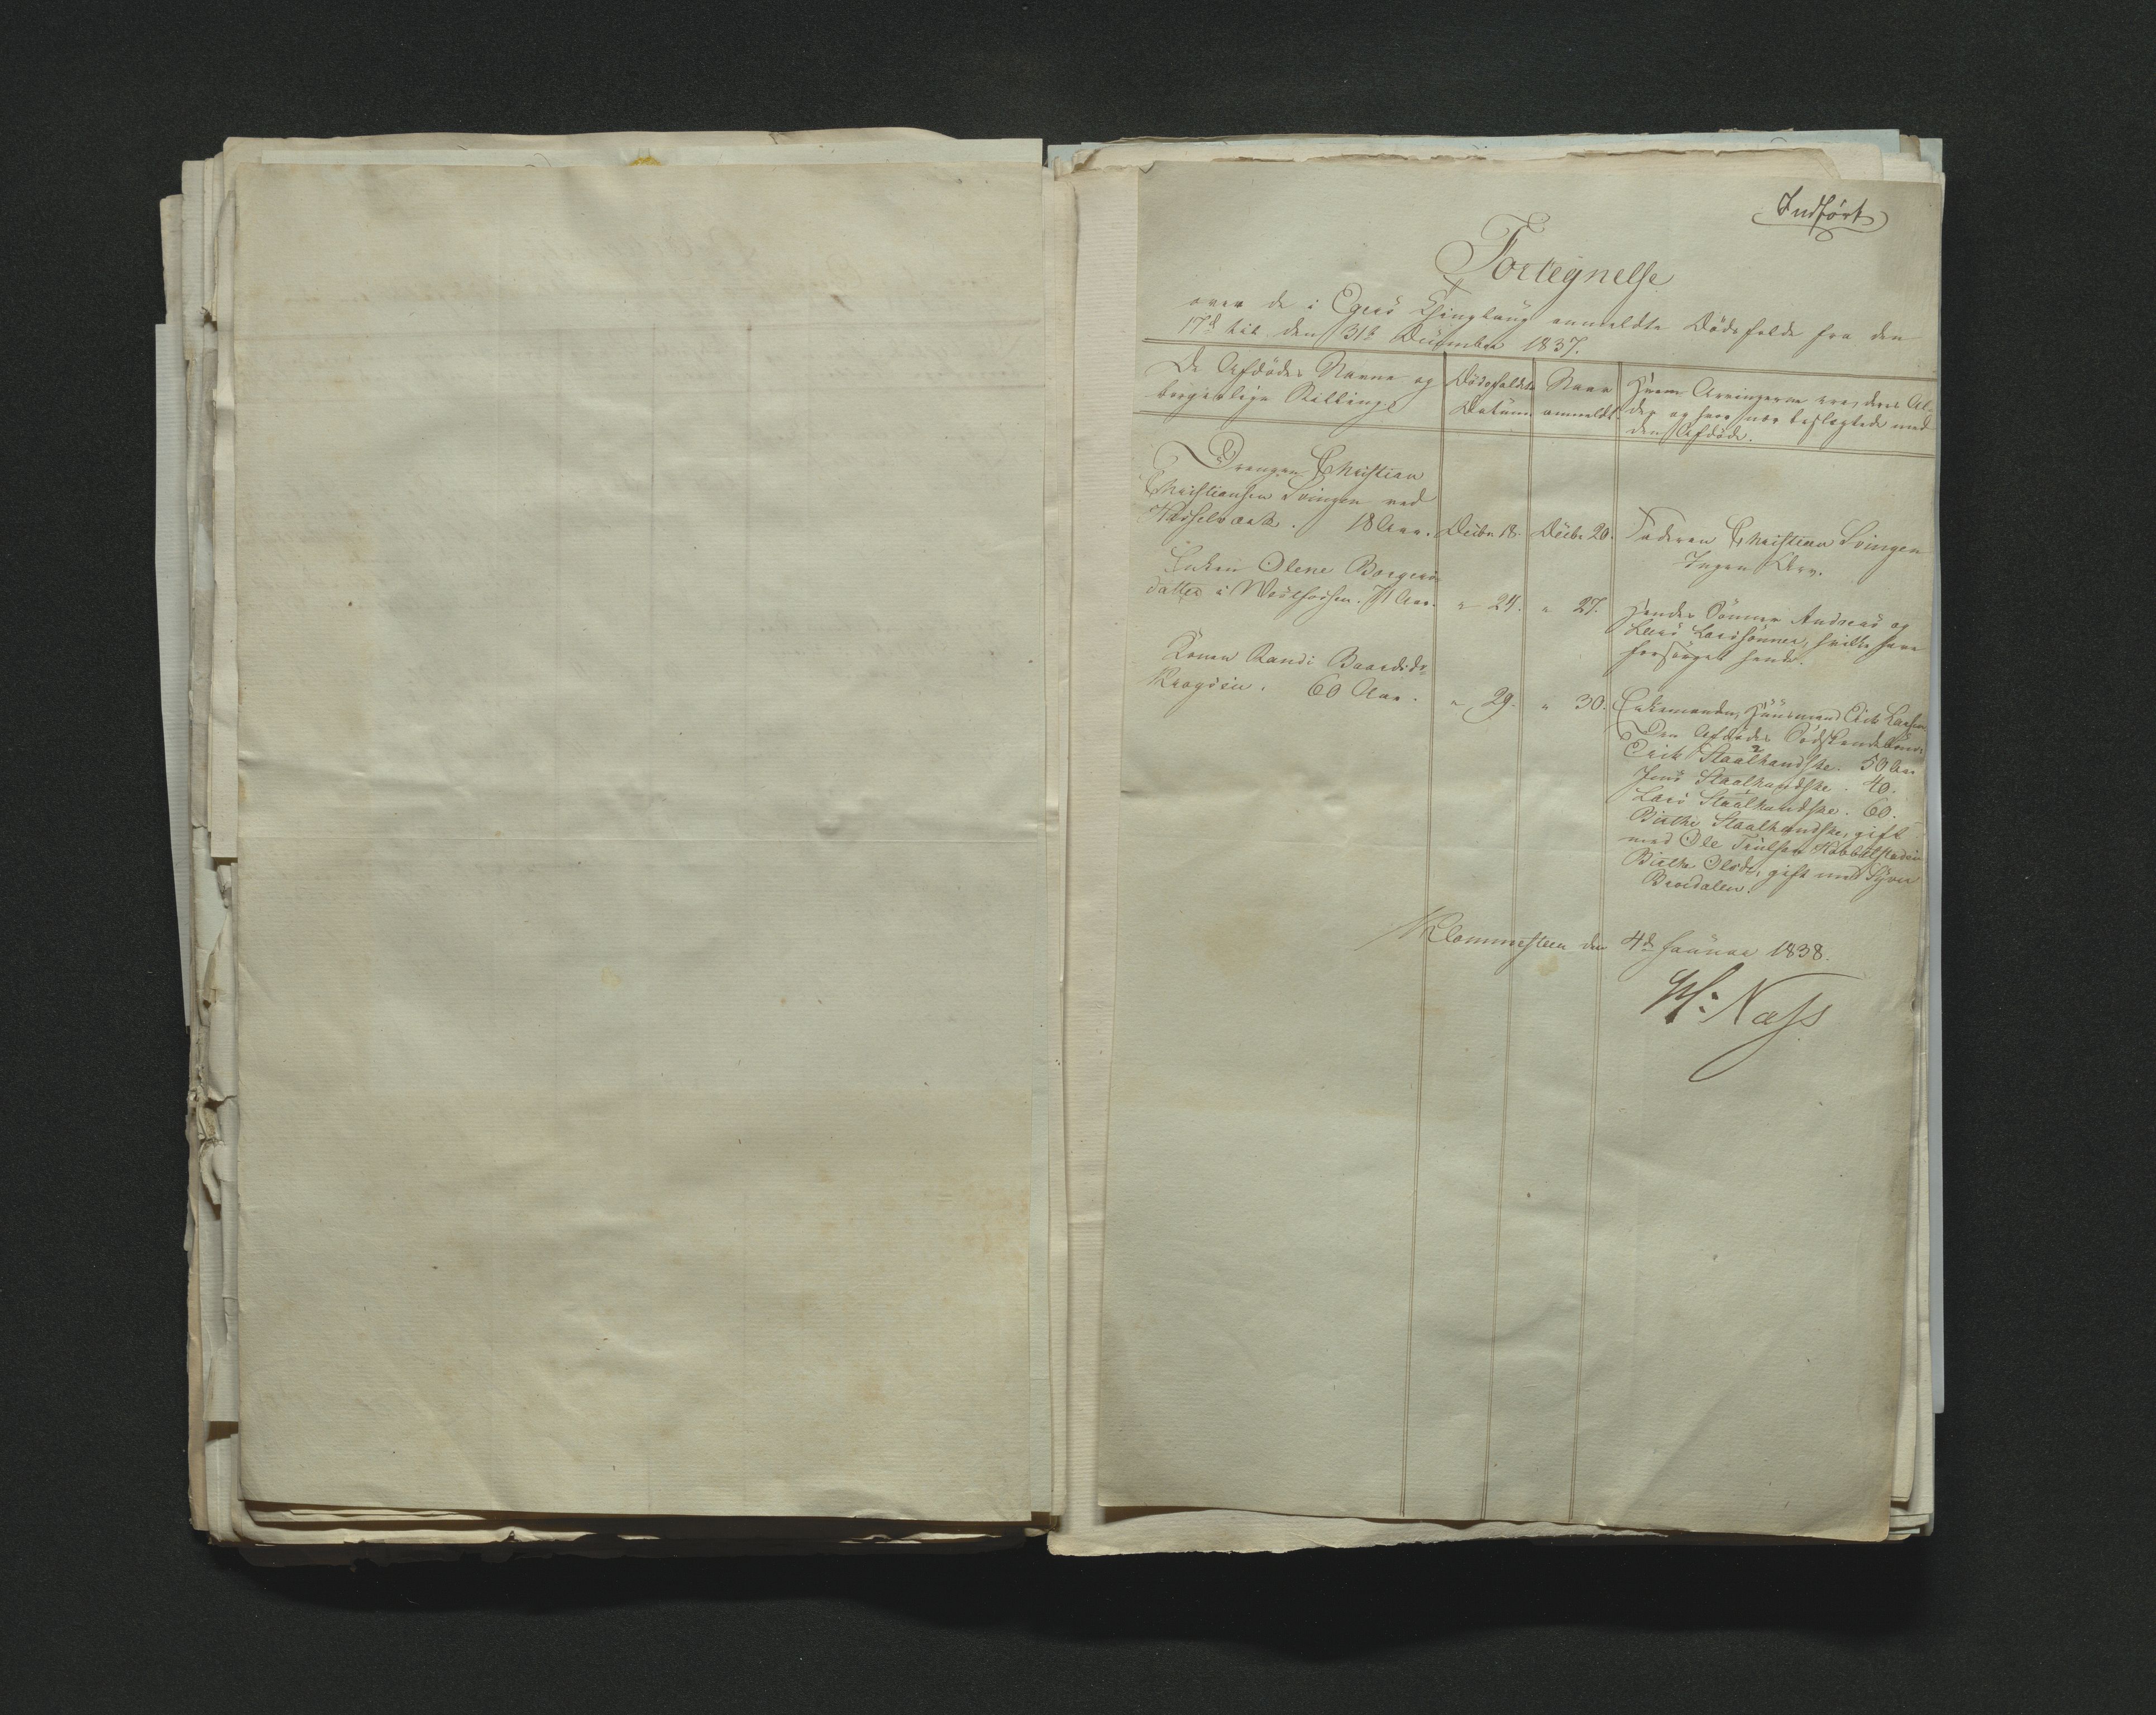 Indført
Fortegnelse
over de i Egers Thinglaug anmeldte Dødsfalde fra den
17d til den 31te December 1837.
De Afdødes Navne og
borgerlige Stilling
Dødsfaldets
Datum
Naar
anmeldt.
Hvem Arvingerne ere, deres Al-
der og hvor nær beslegtede med
den Afdøde.
Drengen Christian
Christiansen Svingen ved
Hasselværk. 18 Aar. Decbr 18. Decbr 20. Faderen Christian Svingen
Ingen Arv.
Enken Olene Borgers-
datter i Westfossen. 71 Aar. " 24. " 27. Hendes Sønner Andreas og
Lars Larssønner, hvilke have
forsørget hende.
Konen Randi Baardsdr
Kragsien. 60 Aar. " 29. " 30. Enkemanden, Huusmand Erik Larsen
Den Afdødes Sødskendebørn:
Erik Staalhandske. 50 Aar
Jens Staalhandske. 40.
Lars Staalhandske. 60.
Birthe Staalhandske, gift
med Ole Truelsen
Birthe Olsdr, gift med Syver
Klommesteen den 4de Januar 1838.
Næss